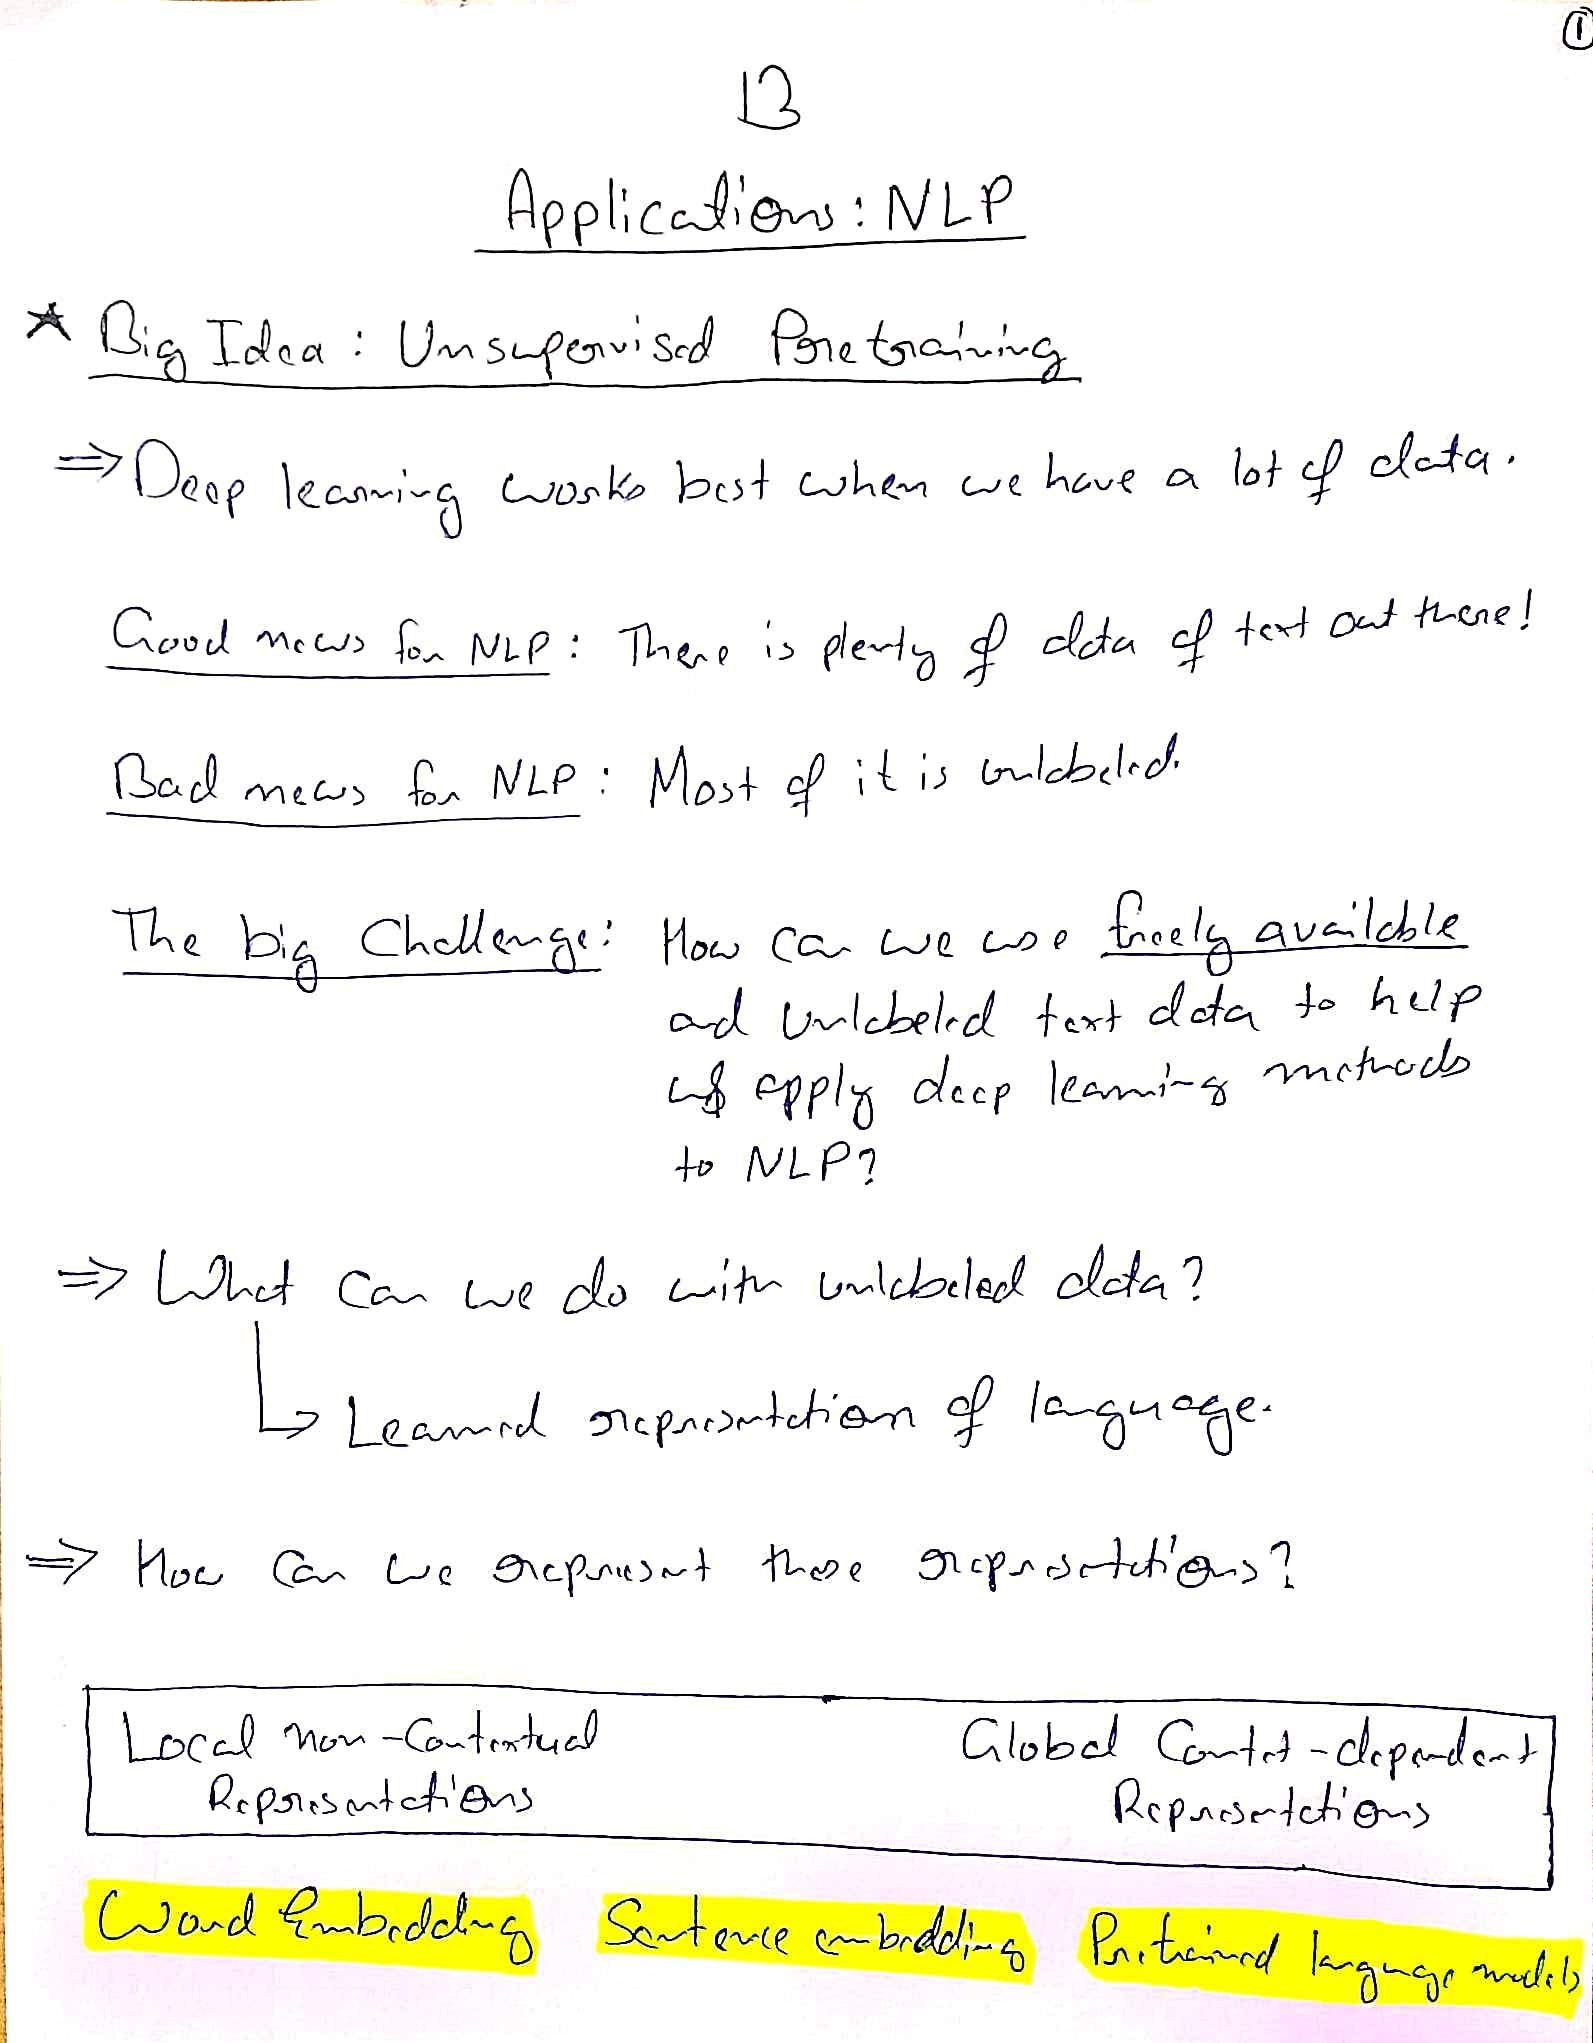 ①
13
Applications: NLP
★ Big Idea: Unsupervised Pretraining
⇒ Deep learning works best when we have a lot of data.
Good news for NLP: There is plenty of data of text out there!
Bad news for NLP: Most of it is unlabeled.
The big Challenge: How can we use freely available
and unlabeled text data to help
us apply deep learning methods
to NLP?
⇒ What can we do with unlabeled data?
↳ Learned representation of language.
⇒ How can we represent these representations?
Local non-Contextual Global Context-dependent
Representations Representations
Word Embedding Sentence embedding Pretrained language models